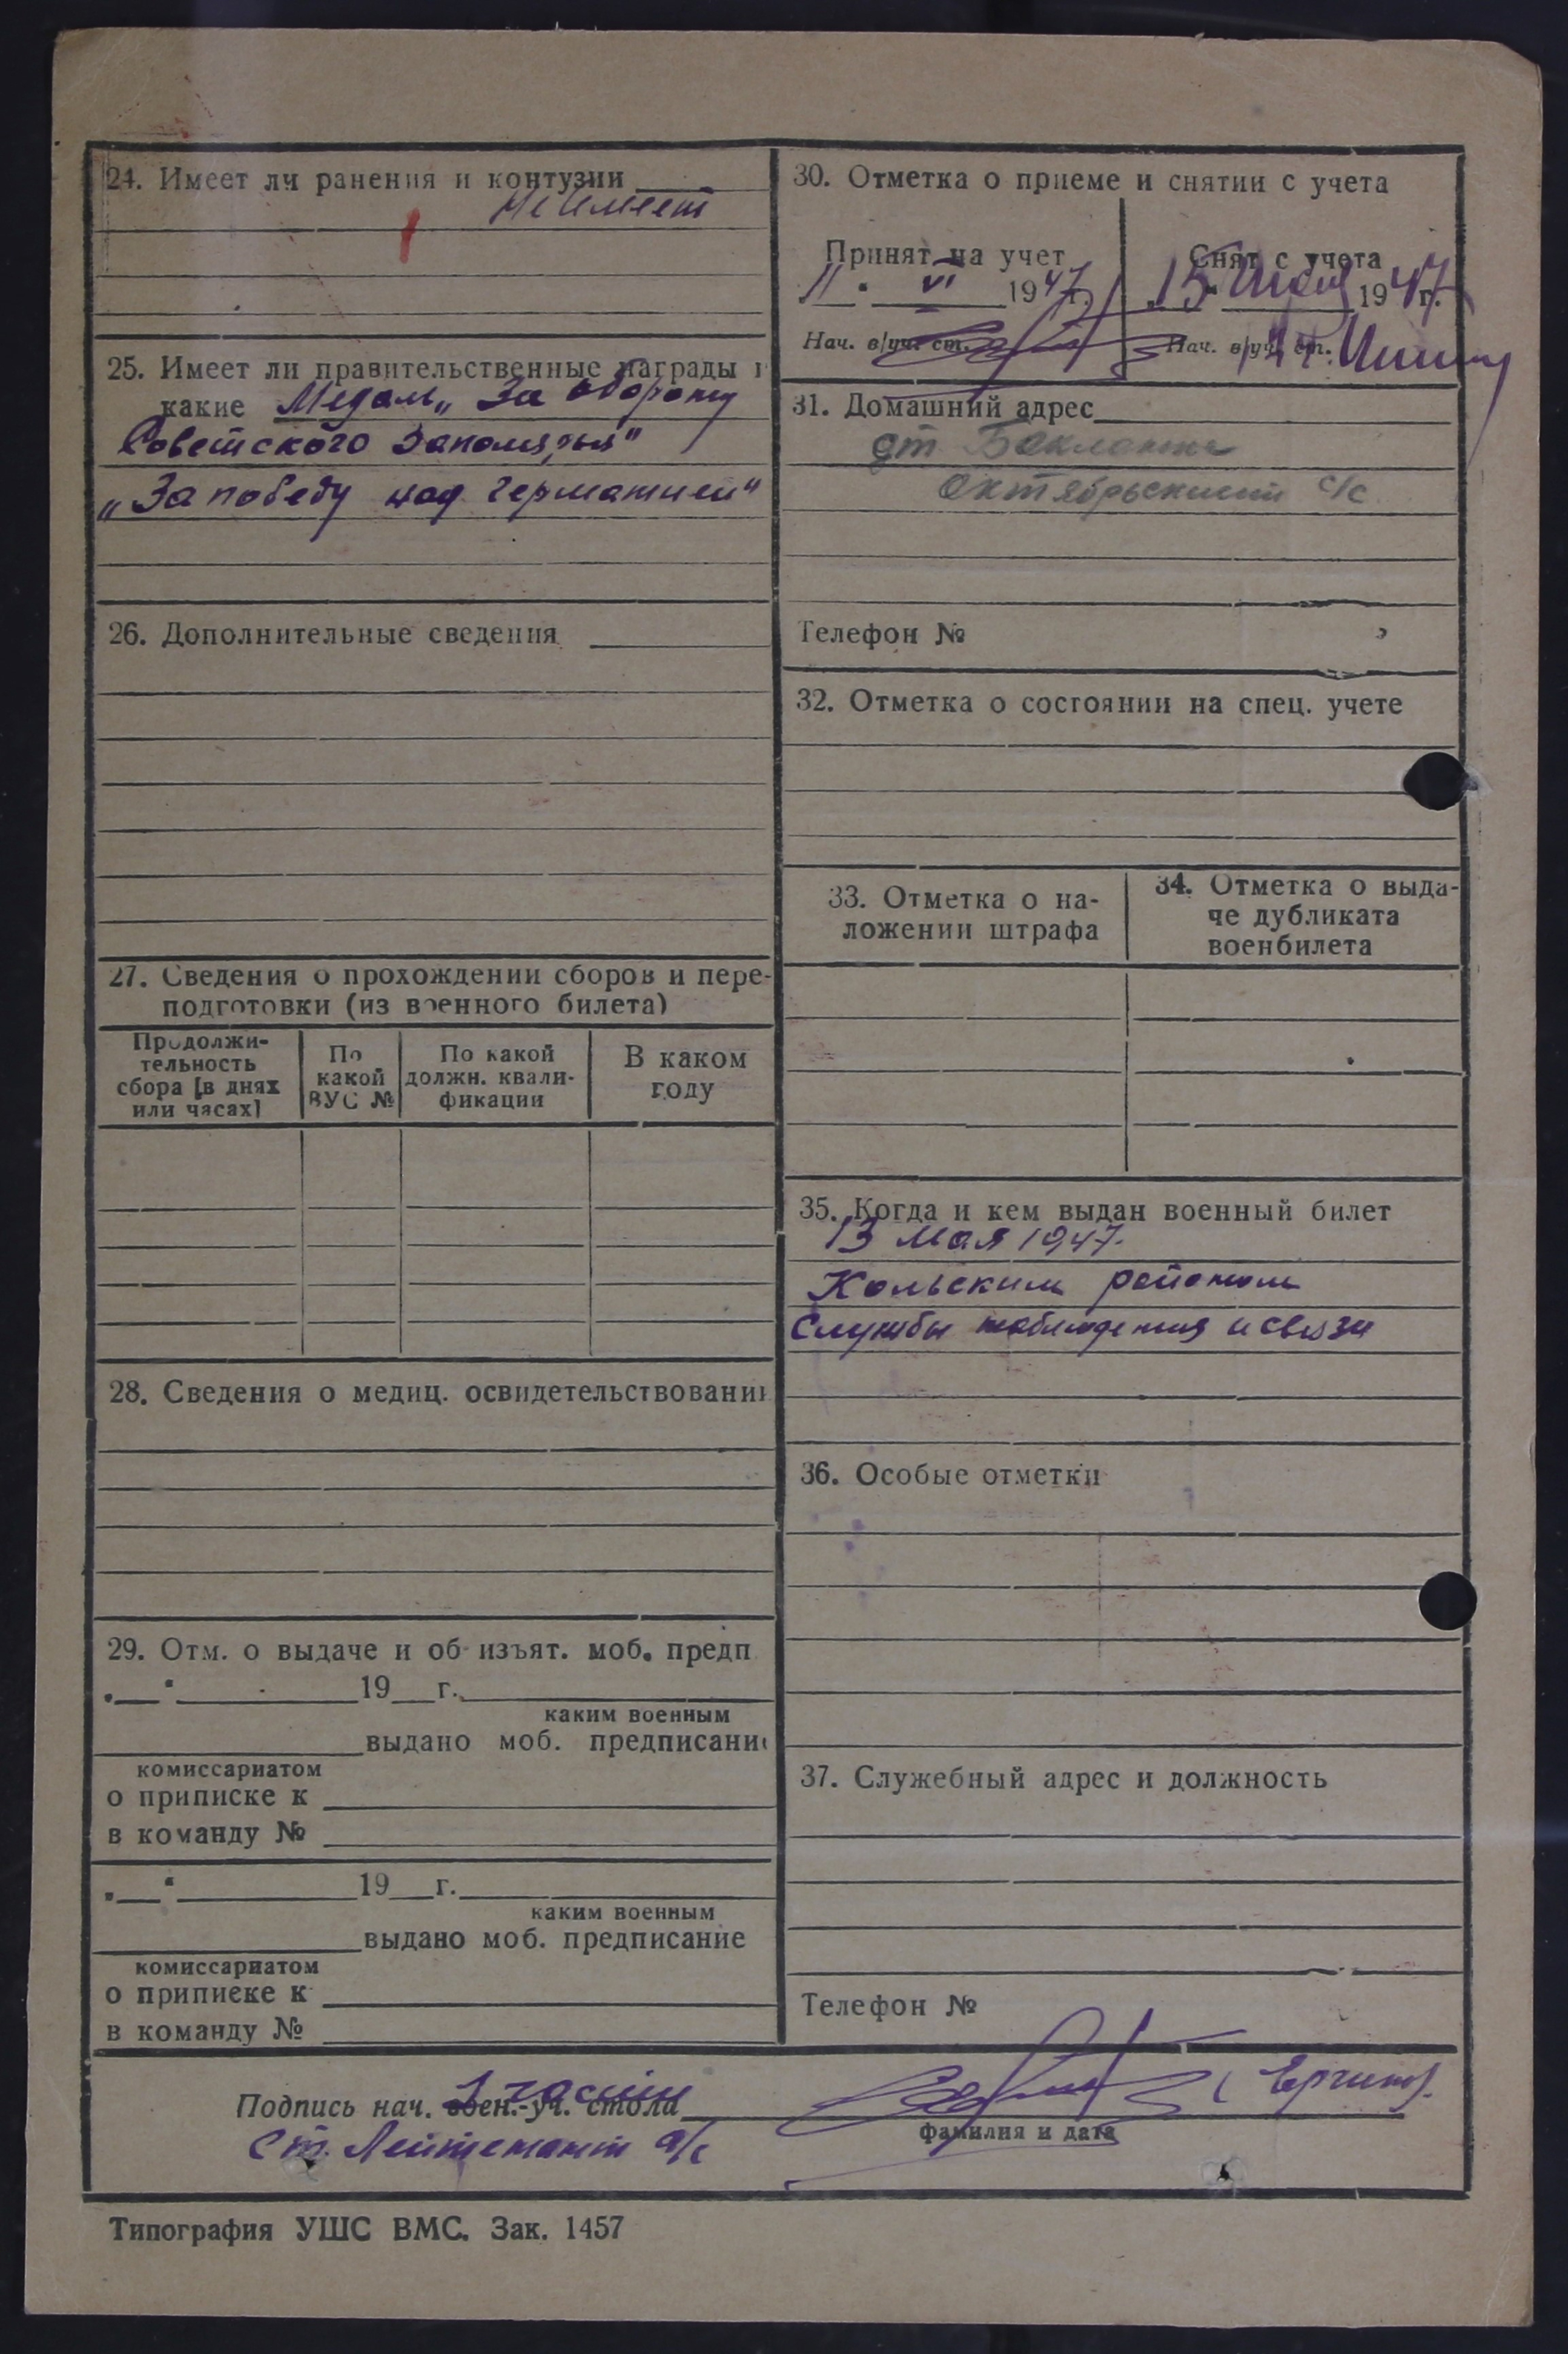 24. Имеет ли ранения и контузии
Не имеет
25. Имеет ли правительственные награды и
какие Медаль „За оборону
Советского Заполярья"
„За победу над германией"
26. Дополнительные сведения
27. Сведения о прохождении сборов и пере-
подготовки (из военного билета)
Продолжи-
тельность
сбора [в днях
или часах]
По
какой
ВУС №
По какой
должн. квали-
фикации
В каком
году
28. Сведения о медиц. освидетельствовании
29. Отм. о выдаче и об изъят. моб. предп
19 г.
каким военным
выдано моб. предписание
комиссариатом
о приписке к
в команду №
19 г.
каким военным
выдано моб. предписание
комиссариатом
о приписке к
в команду №
30. Отметка о приеме и снятии с учета
Принят на учет
11 " VI 1947 г.
Нач. в/уч. ст.
Снят с учета
15 1947 г.
Нач. в/уч. ст.
31. Домашний адрес
Октябрьский с/с
Телефон №
32. Отметка о состоянии на спец. учете
33. Отметка о на-
ложении штрафа
34. Отметка о выда-
че дубликата
военбилета
35. Когда и кем выдан военный билет
13 Мая 1947.
Кольским районом
Службы наблюдения и связи
36. Особые отметки
37. Служебный адрес и должность
Телефон №
1 части
Подпись нач. воен.-уч. стола
фамилия и дата
Ст. Лейтенант а/с
Типография УШС ВМС. Зак. 1457